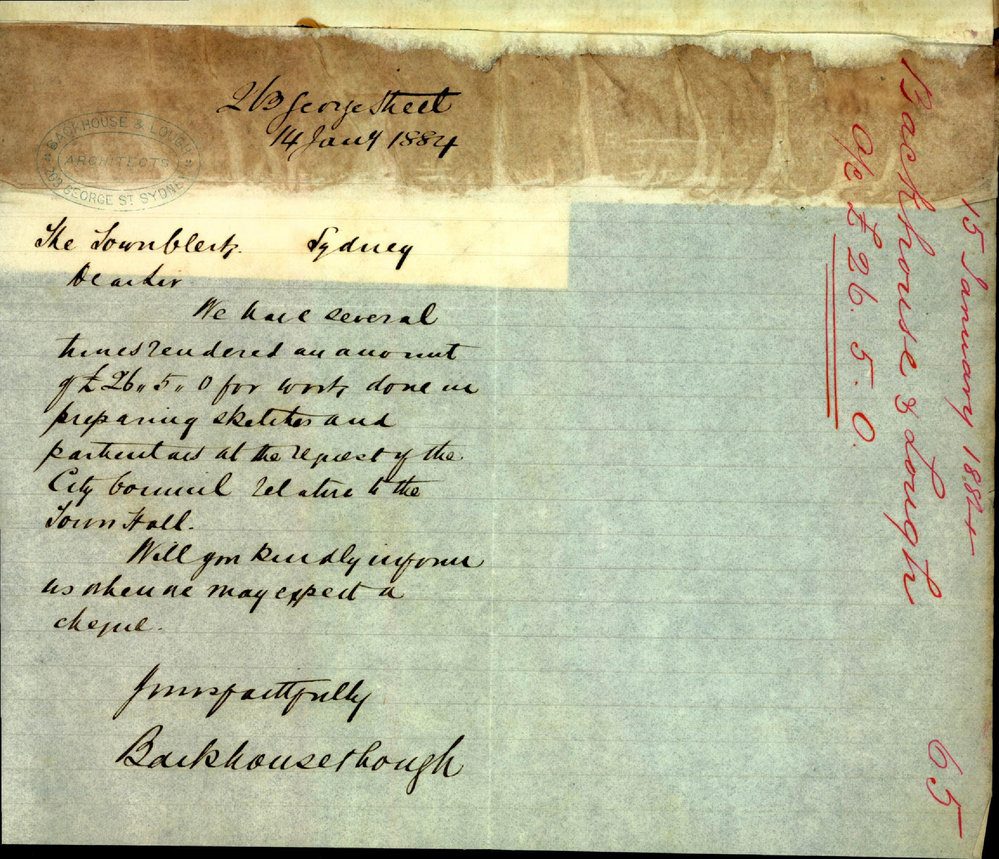 263 George Street
14 Jany 1884
BACKHOUSE & LOUGH
ARCHITECTS
GEORGE ST SYDNEY
The Town Clerk. Sydney
Dear Sir
We have several
times rendered an amount
of £26,, 5,, 0 for work done in
preparing sketches and
particulars at the request of the
City Council relative to the
Town Hall.
Will you kindly inform
us when we may expect a
cheque.
Yours faithfully
Backhouse & Lough
15 January 1884
Backhouse & Lough
a/c £26.5.0.
65